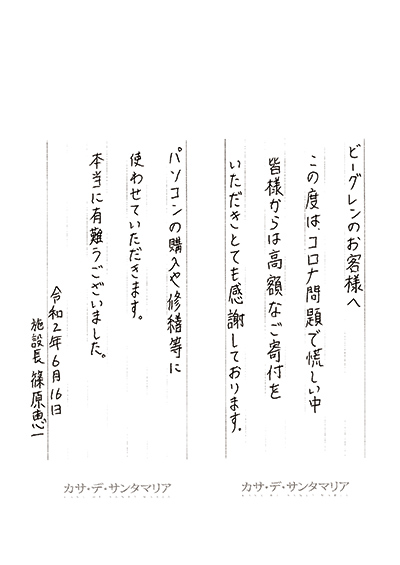 ビーグレンのお客様へ
この度は、コロナ問題で慌しい中
皆様からは高額なご寄付を
いただきとても感謝しております。
カサ・デ・サンタマリア
パソコンの購入や修繕等に
使わせていただきます。
本当に有難うございました。
令和2年6月16日
施設長 篠原恵一
カサ・デ・サンタマリア